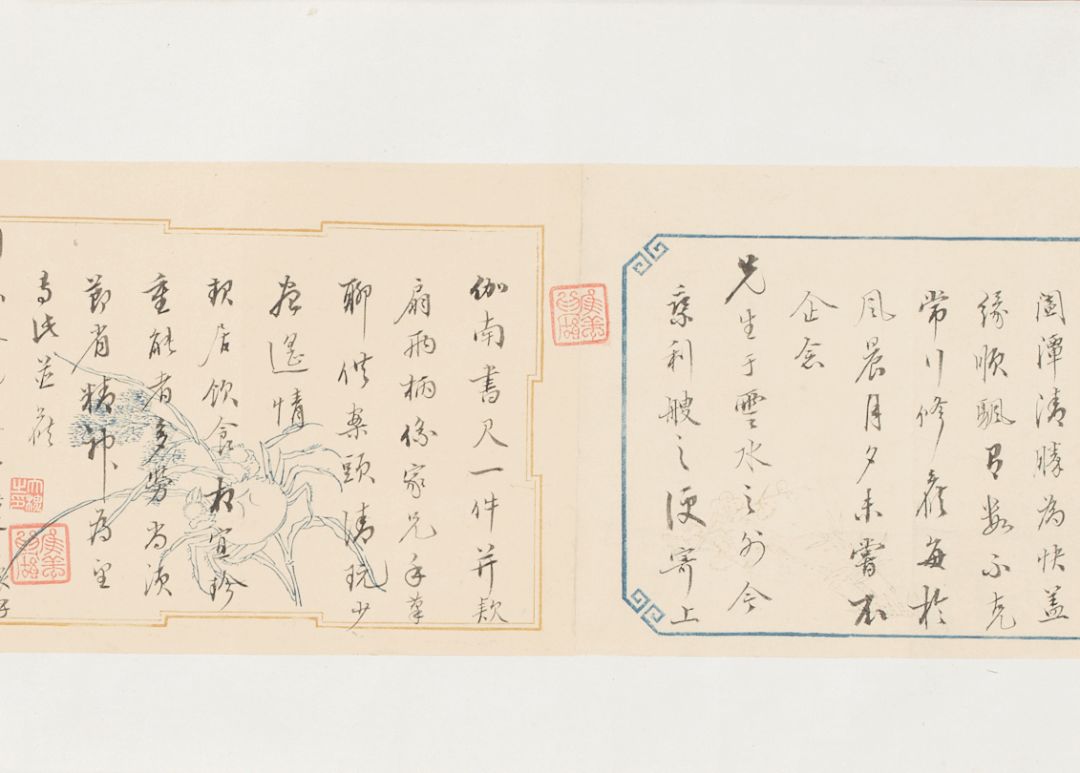 阖潭清勝為快蓋
緣順颿有數不克
常川修候每於
風晨月夕未嘗不
企念
先生于雲水之外今
乘利艘之便寄上
伽南書尺一件并款
扇兩柄係家兄手筆
聊供案頭清玩少
遙情
起居飲食相宜珍
重能者多勞尚須
節省精神為望
專此並候